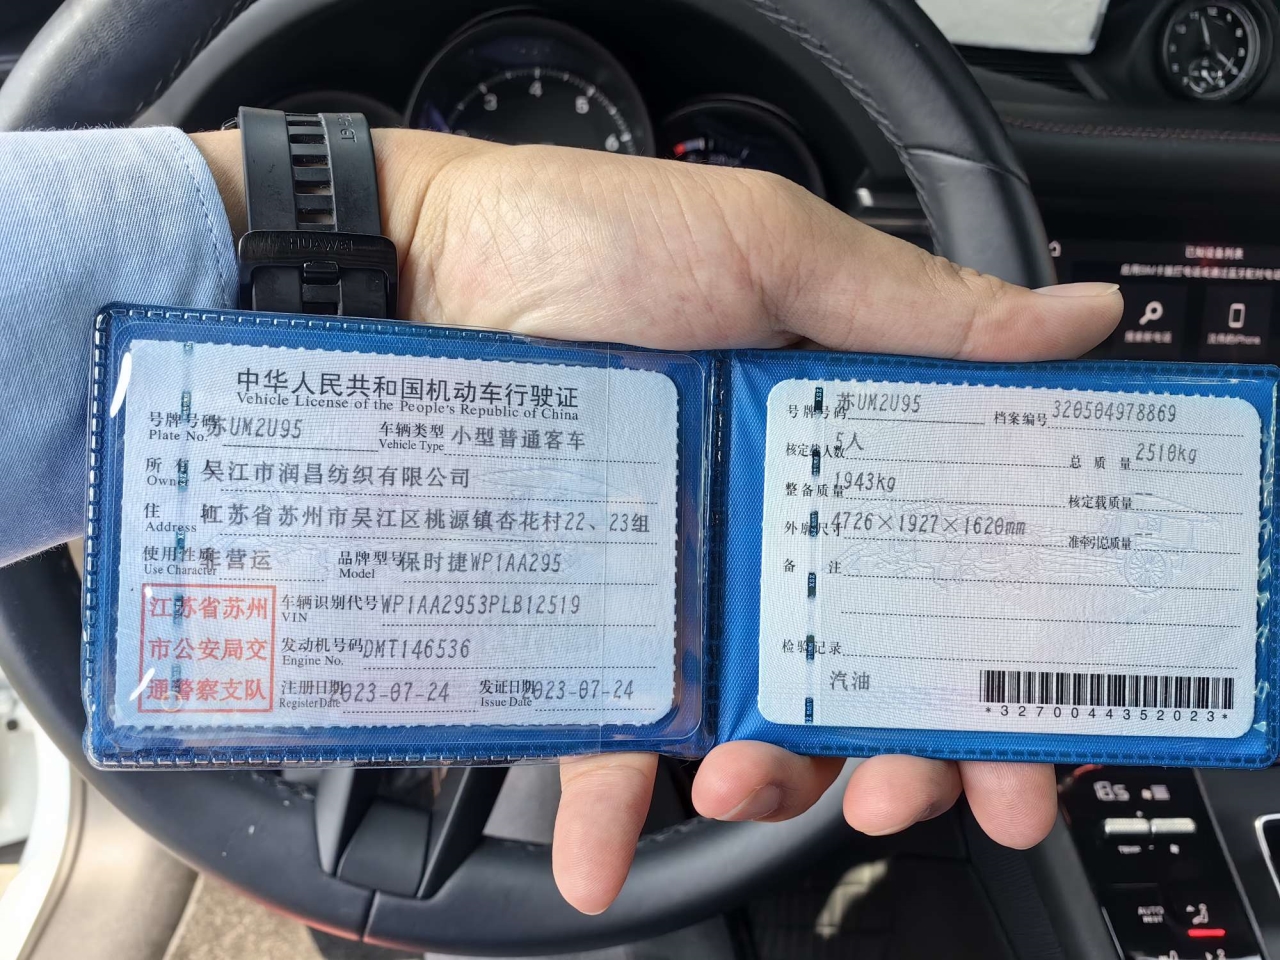 HUAWEI
3 4 6
中华人民共和国机动车行驶证
Vehicle License of the People's Republic of China
号牌号码 苏UM2U95 车辆类型 小型普通客车
Plate No. Vehicle Type
所有 吴江市润昌纺织有限公司
Owner
住址 江苏省苏州市吴江区桃源镇杏花村22、23组
Address
使用性质 非营运 品牌型号 保时捷WP1AA295
Use Character Model
江苏省苏州
市公安局交
通警察支队
车辆识别代号 WP1AA2953PLB12519
VIN
发动机号码 DMT146536
Engine No.
注册日期 2023-07-24 发证日期 2023-07-24
Register Date Issue Date
号牌号码 苏UM2U95 档案编号 320504978869
核定载人数 5人 总质量 2510kg
整备质量 1943kg 核定载质量 --
外廓尺寸 4726×1927×1620mm 准牵引总质量 --
备注
检验记录
汽油
*3270044352023*
已知设备列表
AUTO
REST